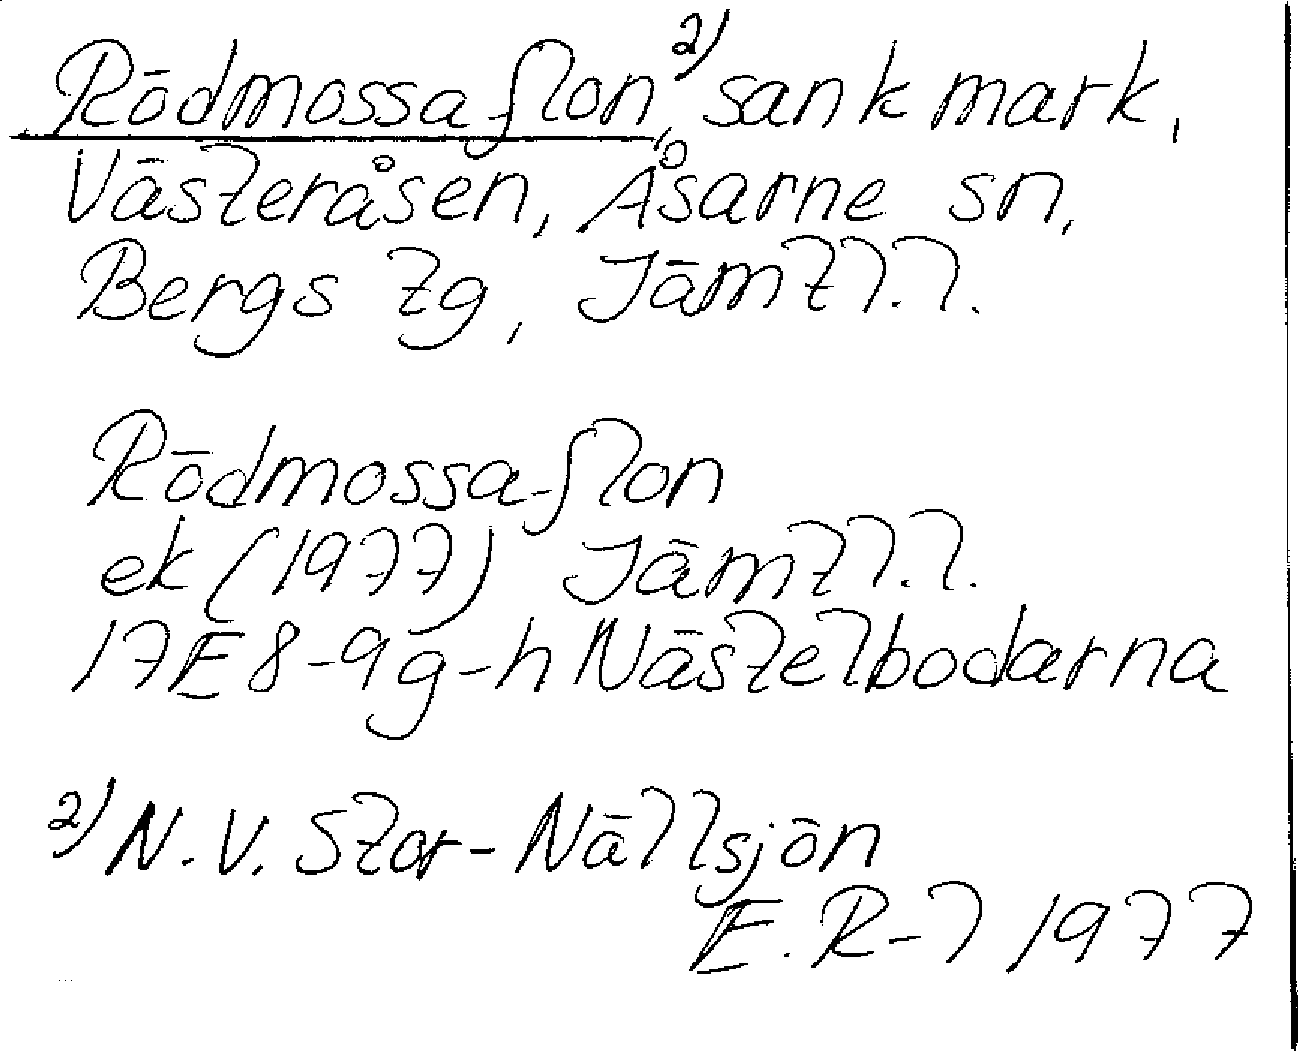 Rödmossaflon,²⁾ sank mark,
Västeråsen, Åsarne sn,
Bergs tg, Jämtl.l.
Rödmossa-flon
ek (1977) Jämtl.l.
17E 8-9g-h Nästelbodarna
²⁾ N.V. Stor-Nällsjön
E. R-l 1977